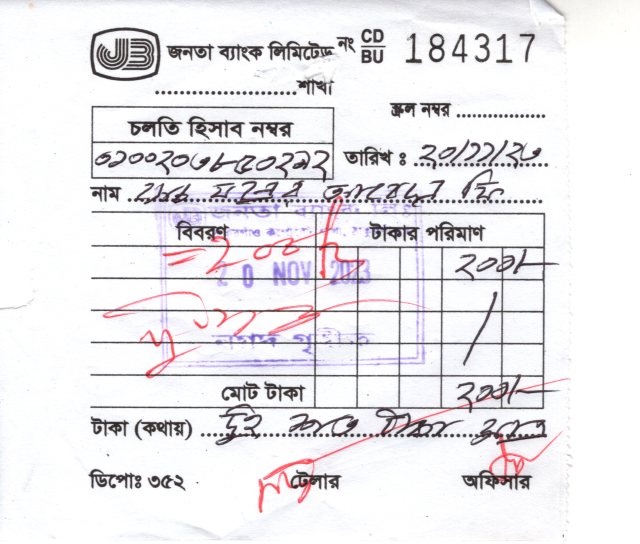 JB জনতা ব্যাংক লিমিটেড নং CD BU 184317
....................শাখা
স্ক্রল নম্বর ................
চলতি হিসাব নম্বর
তারিখ : ২০/১১/২৩
নাম
জনতা ব্যাংক লিঃ
বিবরণ টাকার পরিমাণ
=200/
২০০/-
20 NOV 2023
নগদ গৃহীত
মোট টাকা ২০০/-
টাকা (কথায়) দুই শত টাকা মাত্র
ডিপোঃ ৩৫২ টেলার অফিসার